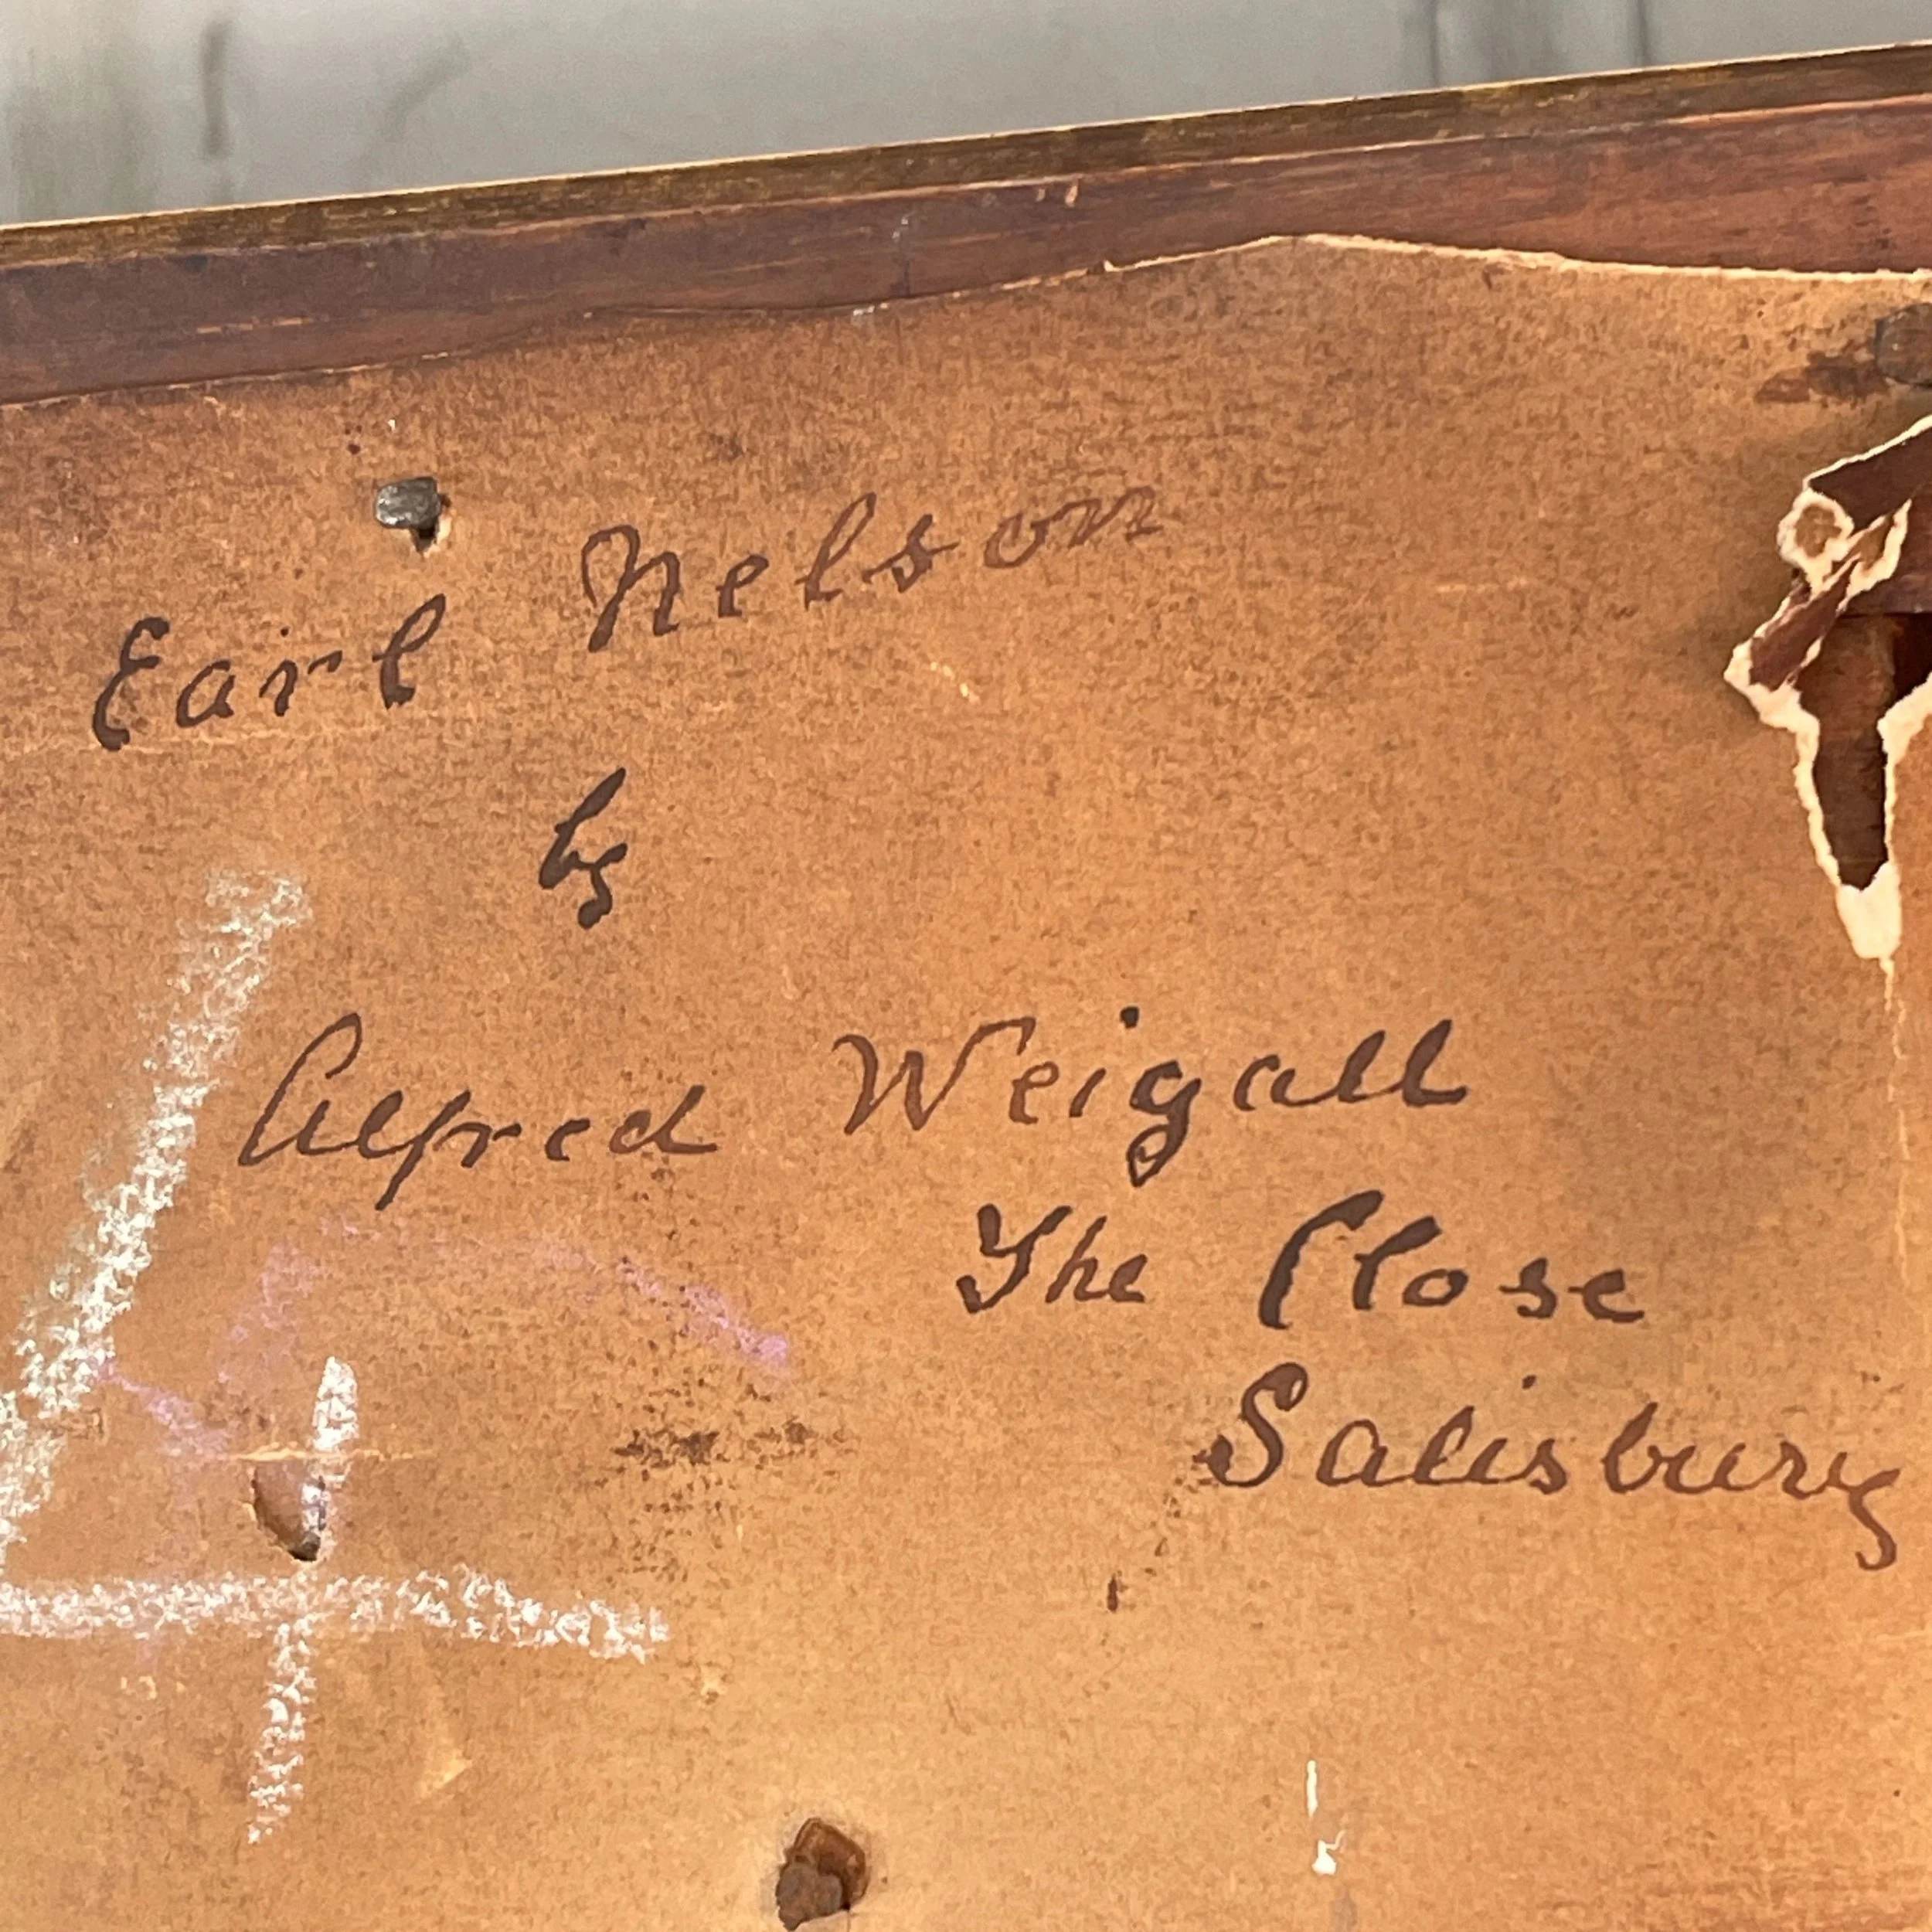 Earl Nelson
by
Alfred Weigall
The Close
Salisbury
4